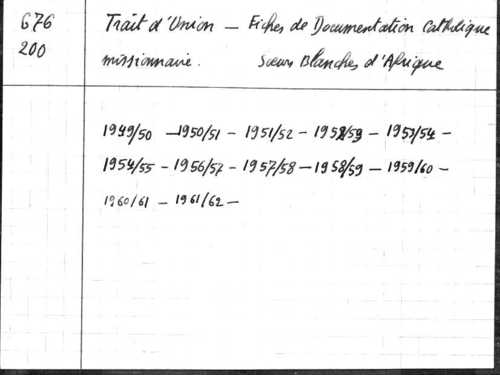 676 Trait d'Union — Fiches de Documentation Catholique
200 missionnaire. Sœurs Blanches d'Afrique
1949/50 — 1950/51 — 1951/52 — 1952/53 — 1953/54 —
1954/55 — 1956/57 — 1957/58 — 1958/59 — 1959/60 —
1960/61 — 1961/62 —